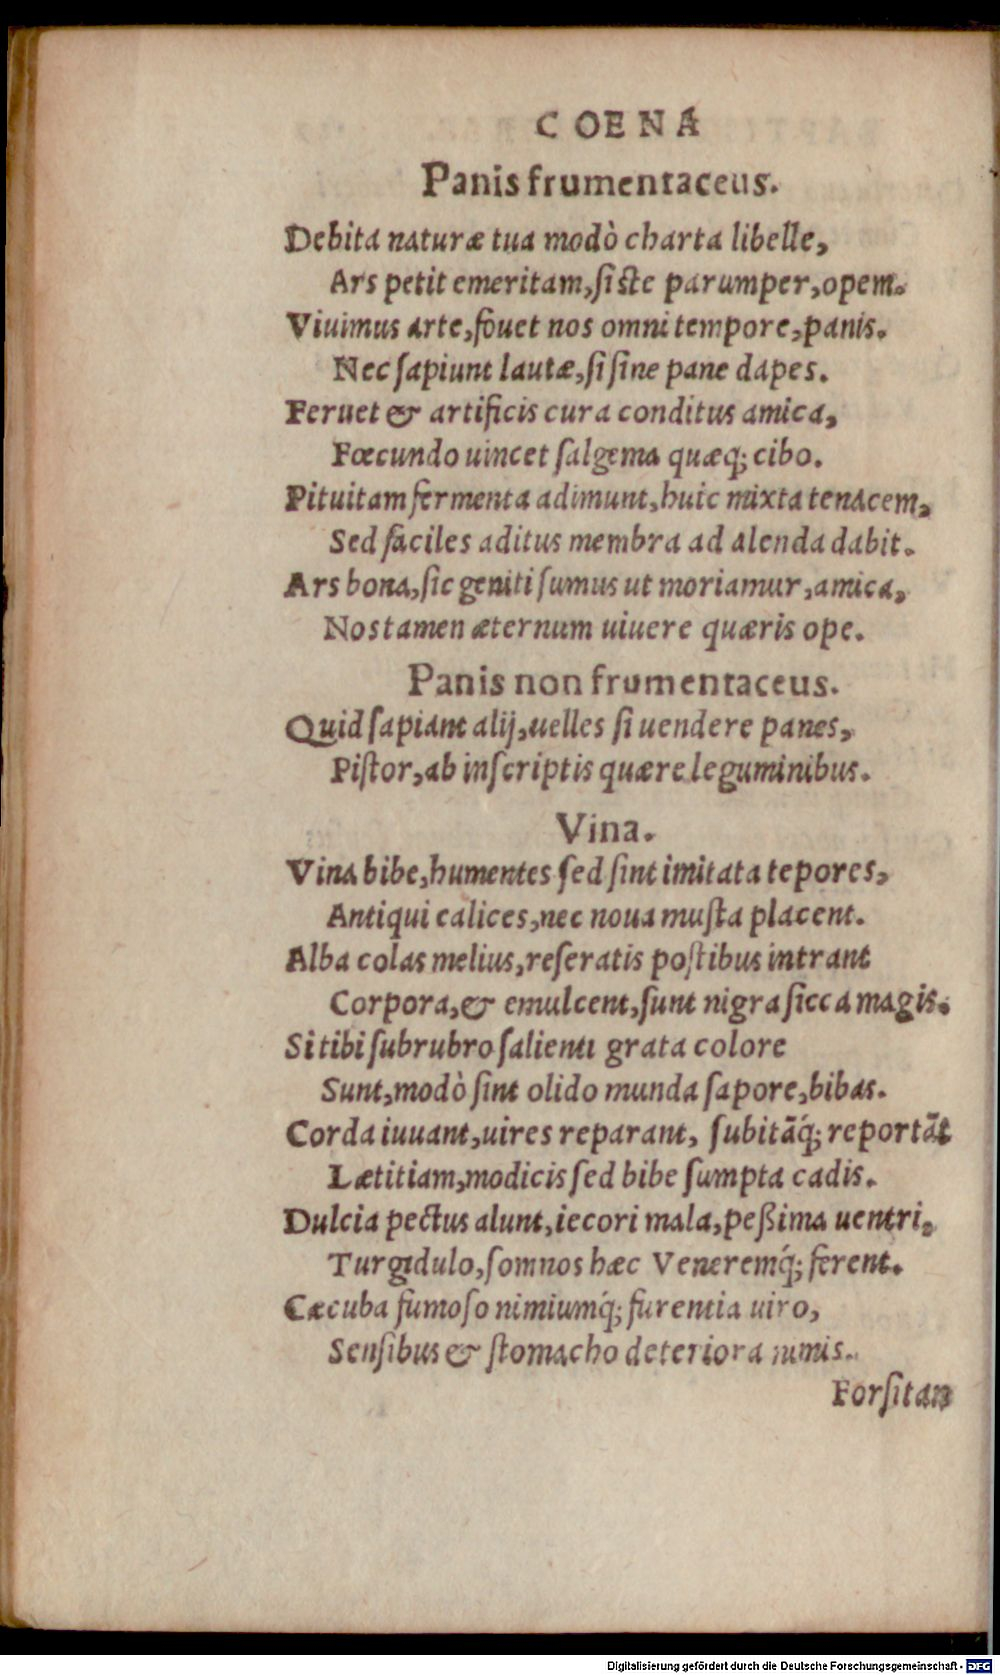 COENA
Panis frumentaceus.
Debita naturæ tua modò charta libelle,
Ars petit emeritam, siste parumper, opem.
Viuimus arte, fouet nos omni tempore, panis.
Nec sapiunt lautæ, si sine pane dapes.
Feruet & artificis cura conditus amica,
Fœcundo uincet salgema quæq; cibo.
Pituitam fermenta adimunt, huic mixta tenacem,
Sed faciles aditus membra ad alenda dabit.
Ars bona, sic geniti sumus ut moriamur, amica,
Nos tamen æternum uiuere quæris ope.
Panis non frumentaceus.
Quid sapiant alij, uelles si uendere panes,
Pistor, ab inscriptis quære leguminibus.
Vina.
Vina bibe, humentes sed sint imitata tepores,
Antiqui calices, nec noua musta placent.
Alba colas melius, reseratis postibus intrant
Corpora, & emulcent, sunt nigra sicca magis.
Si tibi subrubro salienti grata colore
Sunt, modò sint olido munda sapore, bibas.
Corda iuuant, uires reparant, subitāq́; reportāt
Lætitiam, modicis sed bibe sumpta cadis.
Dulcia pectus alunt, iecori mala, peßima uentri,
Turgidulo, somnos hæc Veneremq́; ferent.
Cæcuba fumoso nimiumq́; furentia uiro,
Sensibus & stomacho deteriora nimis.
Forsitan
Digitalisierung gefördert durch die Deutsche Forschungsgemeinschaft - DFG